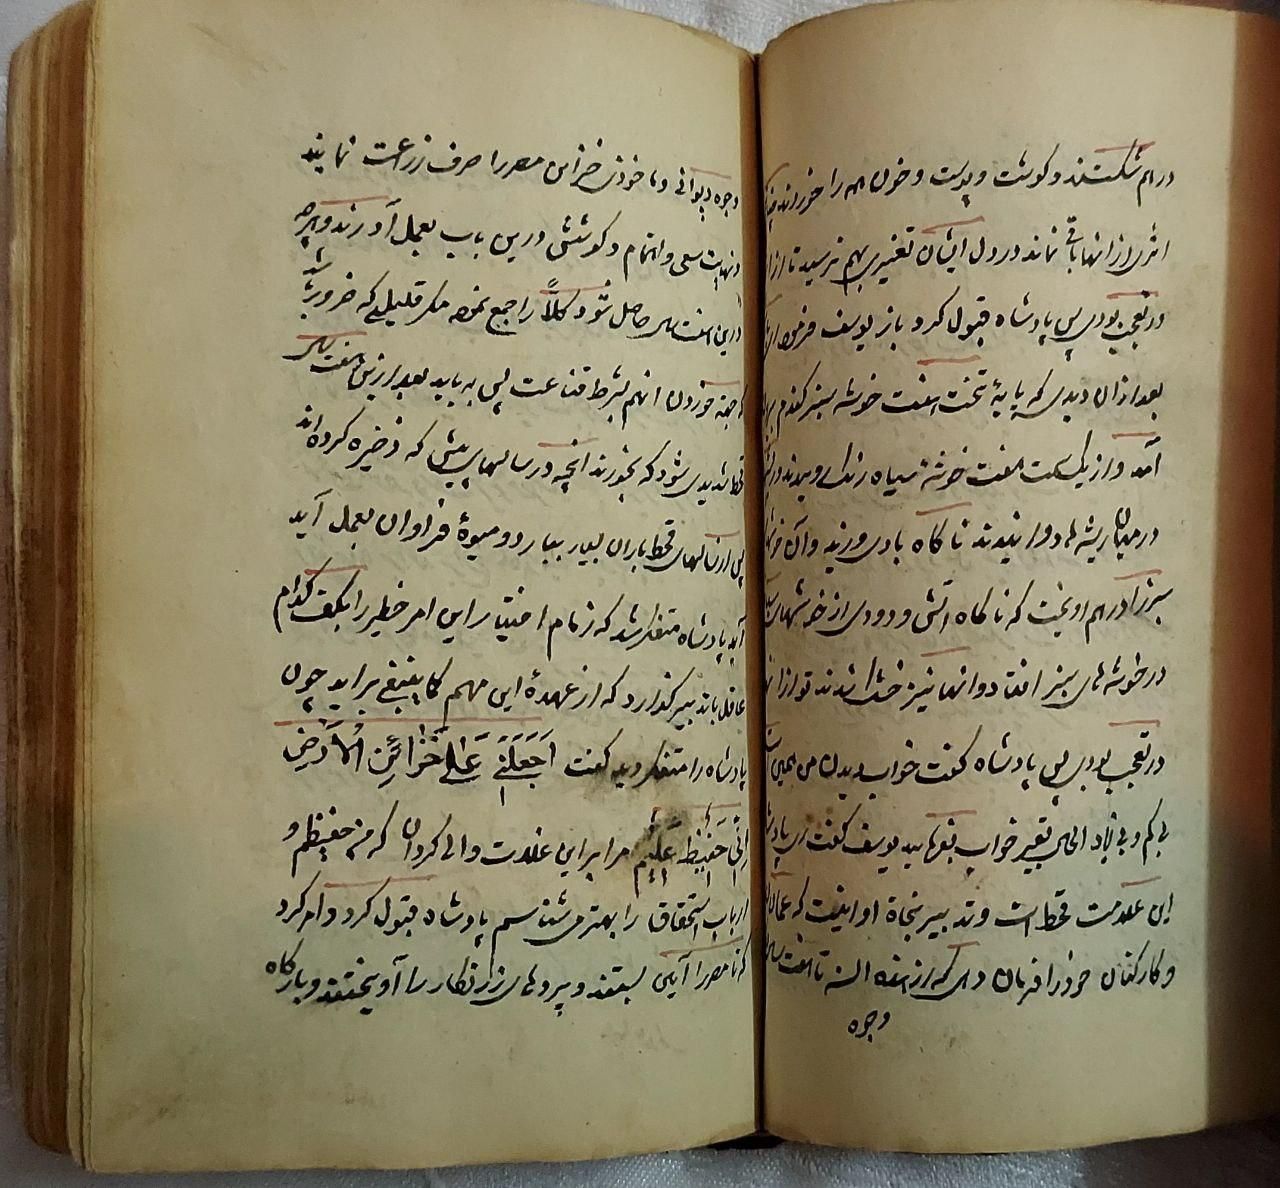 درهم شکستند و گوشت و پوست و خون همه را خوردند
اثری از انها باقی نماند و در دل ایشان تغییری بهم نرسید تا از
در تعجب بودی پس پادشاه قبول کرد باز یوسف فرمود
بعد ازان دیدی که پایهٔ تخت هفت خوشه سبز گندم
آمد و از یک سمت هفت خوشه سیاه رنگ
در میان ریشه ها دوانیدند ناگاه بادی وزید و آن
سبز را درهم اویخت که ناگاه آتش و دودی از خوشهای
در خوشه های سبز افتاد و انها نیز خشک شدند تو ازان
در تعجب بودی پس پادشاه گفت خواب دیدن من همین
بی کم و بی زیاد الحال تعبیر خواب بفرمایید یوسف گفت ای
این علامت قحط است و تدبیر نجاة او اینست که
و کارکنان خود را فرمان دهی که از هذه السنه تا هفت سال
وجوه
وجوه دیوانی و ماخوذی خزاین مصر را صرف زراعت نمایند
و نهایت سعی و اهتمام و کوشش درین باب بعمل آورند و هرچه
درین هفت سال حاصل شود کلاً را جمع نموده مگر قلیلی که ضرور باشد
جهة خوردن انهم بشرط قناعت پس بیاید بعد ازین هفت سال
قحط شدیدی شود که بخورند انچه در سالهای پیش که ذخیره کرده اند
پس ازان سالهای قحط باران بسیار ببارد و میوهٔ فراوان بعمل آید
آید پادشاه متفکر شد که زمام اختیار این امر خطیر را بکف کدام
عاقل با تدبیر گذارد که از عهدهٔ این مهم کاینبغی براید چون
پادشاه را متفکر دید گفت اجعلنی علی خزائن الارض
انی حفیظ علیم مرا بر این غلات والی گردان که من حفیظم و
ارباب استحقاق را بهتر میشناسم پادشاه قبول کرد و امر کرد
که تا مصر را آیین بستند و پردهای زرنگار را آویختند و بارگاه